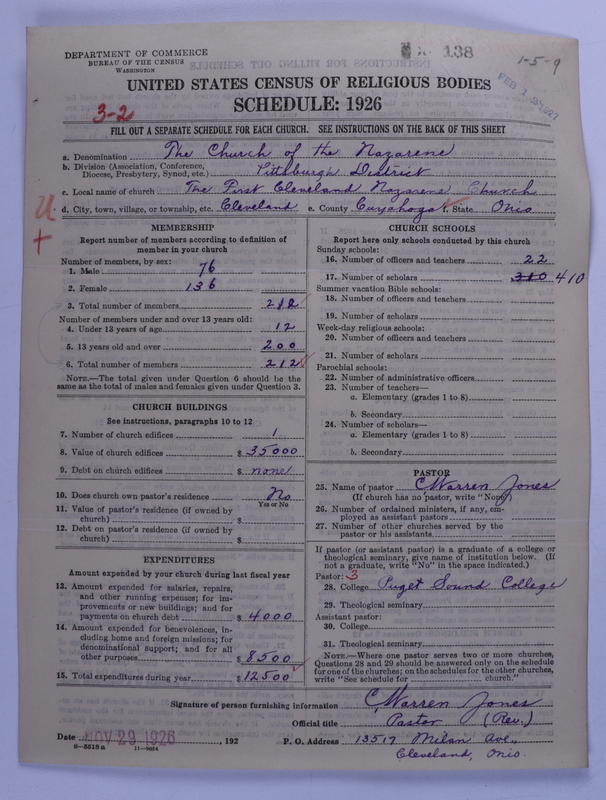 DEPARTMENT OF COMMERCE
BUREAU OF THE CENSUS
WASHINGTON
138
1-5-9
FEB 1 1927
UNITED STATES CENSUS OF RELIGIOUS BODIES
SCHEDULE: 1926
3-2
FILL OUT A SEPARATE SCHEDULE FOR EACH CHURCH. SEE INSTRUCTIONS ON THE BACK OF THIS SHEET
a. Denomination The Church of the Nazarene
b. Division (Association, Conference, Diocese, Presbytery, Synod, etc.) Pittsburgh District
c. Local name of church The First Cleveland Nazarene Church
d. City, town, village, or township, etc. Cleveland e. County Cuyahoga f. State Ohio
MEMBERSHIP
Report number of members according to definition of
member in your church
Number of members, by sex:
1. Male 76
2. Female 136
3. Total number of members 212
Number of members under and over 13 years old:
4. Under 13 years of age 12
5. 13 years old and over 200
6. Total number of members 212
NOTE.—The total given under Question 6 should be
same as the total of males and females given under Question 3.
CHURCH BUILDINGS
See instructions, paragraphs 10 to 12
7. Number of church edifices 1
8. Value of church edifices $ 35000
9. Debt on church edifices $ none
10. Does church own pastor's residence No
Yes or No
11. Value of pastor's residence (if owned by
church) $
12. Debt on pastor's residence (if owned by
church) $
EXPENDITURES
Amount expended by your church during last fiscal year
13. Amount expended for salaries, repairs,
and other running expenses; for im-
provements or new buildings; and for
payments on church debt $ 4000
14. Amount expended for benevolences, in-
cluding home and foreign missions; for
denominational support; and for all
other purposes $ 8500
15. Total expenditures during year $ 12500
CHURCH SCHOOLS
Report here only schools conducted by this church
Sunday schools:
16. Number of officers and teachers 22
17. Number of scholars 310 410
Summer vacation Bible schools:
18. Number of officers and teachers
19. Number of scholars
Week-day religious schools:
20. Number of officers and teachers
21. Number of scholars
Parochial schools:
22. Number of administrative officers
23. Number of teachers—
a. Elementary (grades 1 to 8)
b. Secondary
24. Number of scholars—
a. Elementary (grades 1 to 8)
b. Secondary
PASTOR
25. Name of pastor C Warren Jones
(If church has no pastor, write "None")
26. Number of ordained ministers, if any, em-
ployed as assistant pastors
27. Number of other churches served by the
pastor or his assistants
If pastor (or assistant pastor) is a graduate of a college or
theological seminary, give name of institution below. (If
not a graduate, write "No" in the space indicated.)
Pastor: 3
28. College Puget Sound College
29. Theological seminary
Assistant pastor:
30. College
31. Theological seminary
NOTE.—Where one pastor serves two or more churches,
Questions 28 and 29 should be answered only on the schedule
for one of the churches; on the schedules for the other churches,
write "See schedule for church."
Signature of person furnishing information C, Warren Jones
Official title Pastor (Rev.)
Date NOV 29 1926, 192 P. O. Address 13517 Milan Ave.
8—5518a 11—9064
Cleveland, Ohio.